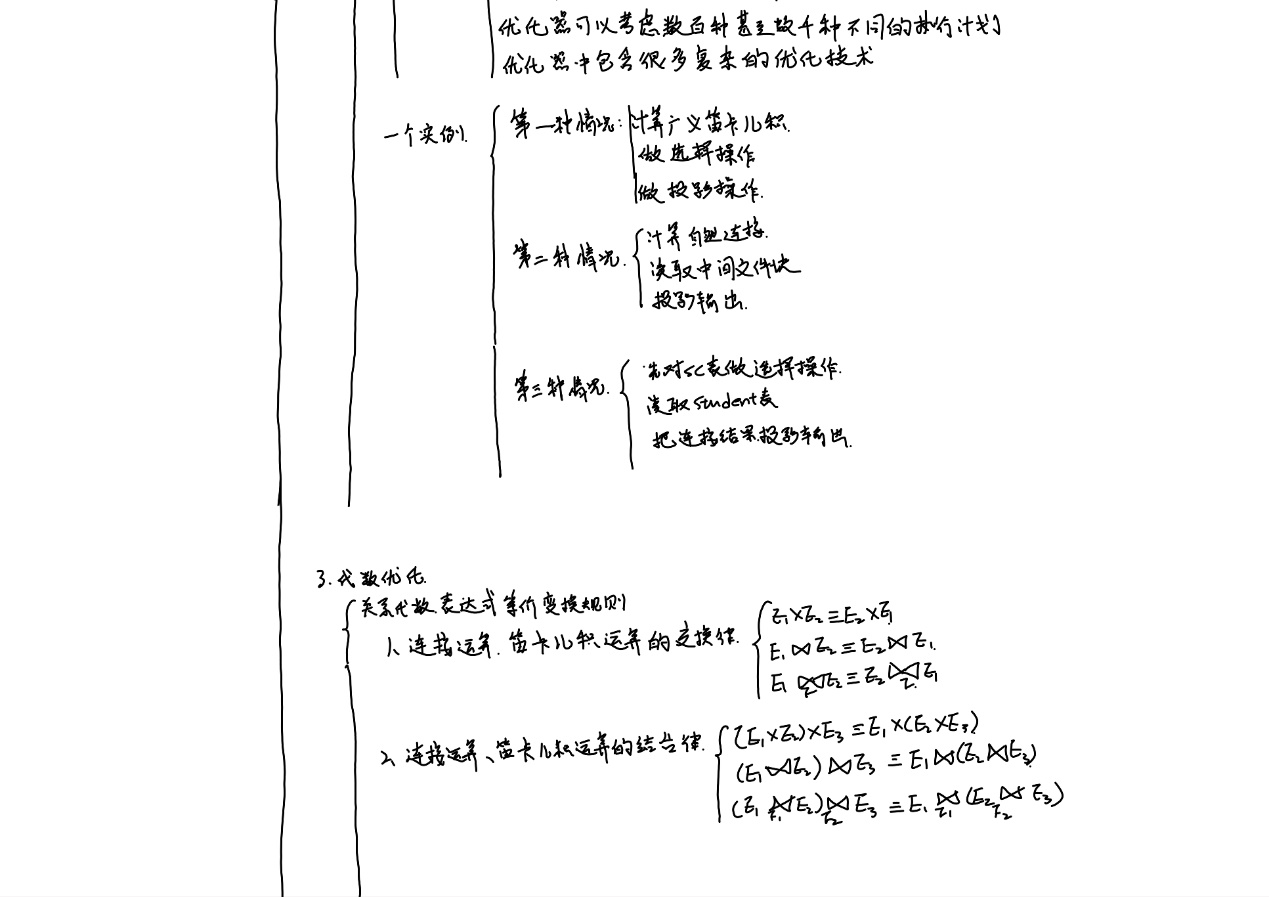 优化器可以考虑数百种甚至数千种不同的执行计划
优化器中包含很多复杂的优化技术
一个实例.
第一种情况: 计算广义笛卡儿积.
做选择操作
做投影操作.
第二种情况.
计算自然连接.
读取中间文件块
投影输出.
第三种情况.
先对SC表做选择操作.
读取Student表
把连接结果投影输出.
3.代数优化.
关系代数表达式等价变换规则
1、连接运算.笛卡儿积运算的交换律.
E₁×E₂≡E₂×E₁
E₁⋈E₂≡E₂⋈E₁.
E₁ ⋈F E₂≡E₂ ⋈F E₁
2、连接运算、笛卡儿积运算的结合律.
(E₁×E₂)×E₃≡E₁×(E₂×E₃)
(E₁⋈E₂)⋈E₃≡E₁⋈(E₂⋈E₃)
(E₁ ⋈F₁ E₂) ⋈F₂ E₃≡E₁ ⋈F₁ (E₂ ⋈F₂ E₃)